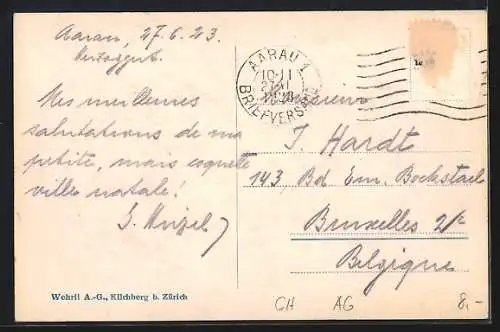 Aarau, 27.6.23.
Mes meilleures
salutations de ma
petite, mais coquette
ville natale!
Wehrli A.-G., Kilchberg b. Zürich
AARAU 1
10-11
BRIEFVERSAND
Monsieur
J. Hardt
143, Bd Em. Bockstael
Bruxelles 2/c
Belgique
CH AG 8,-